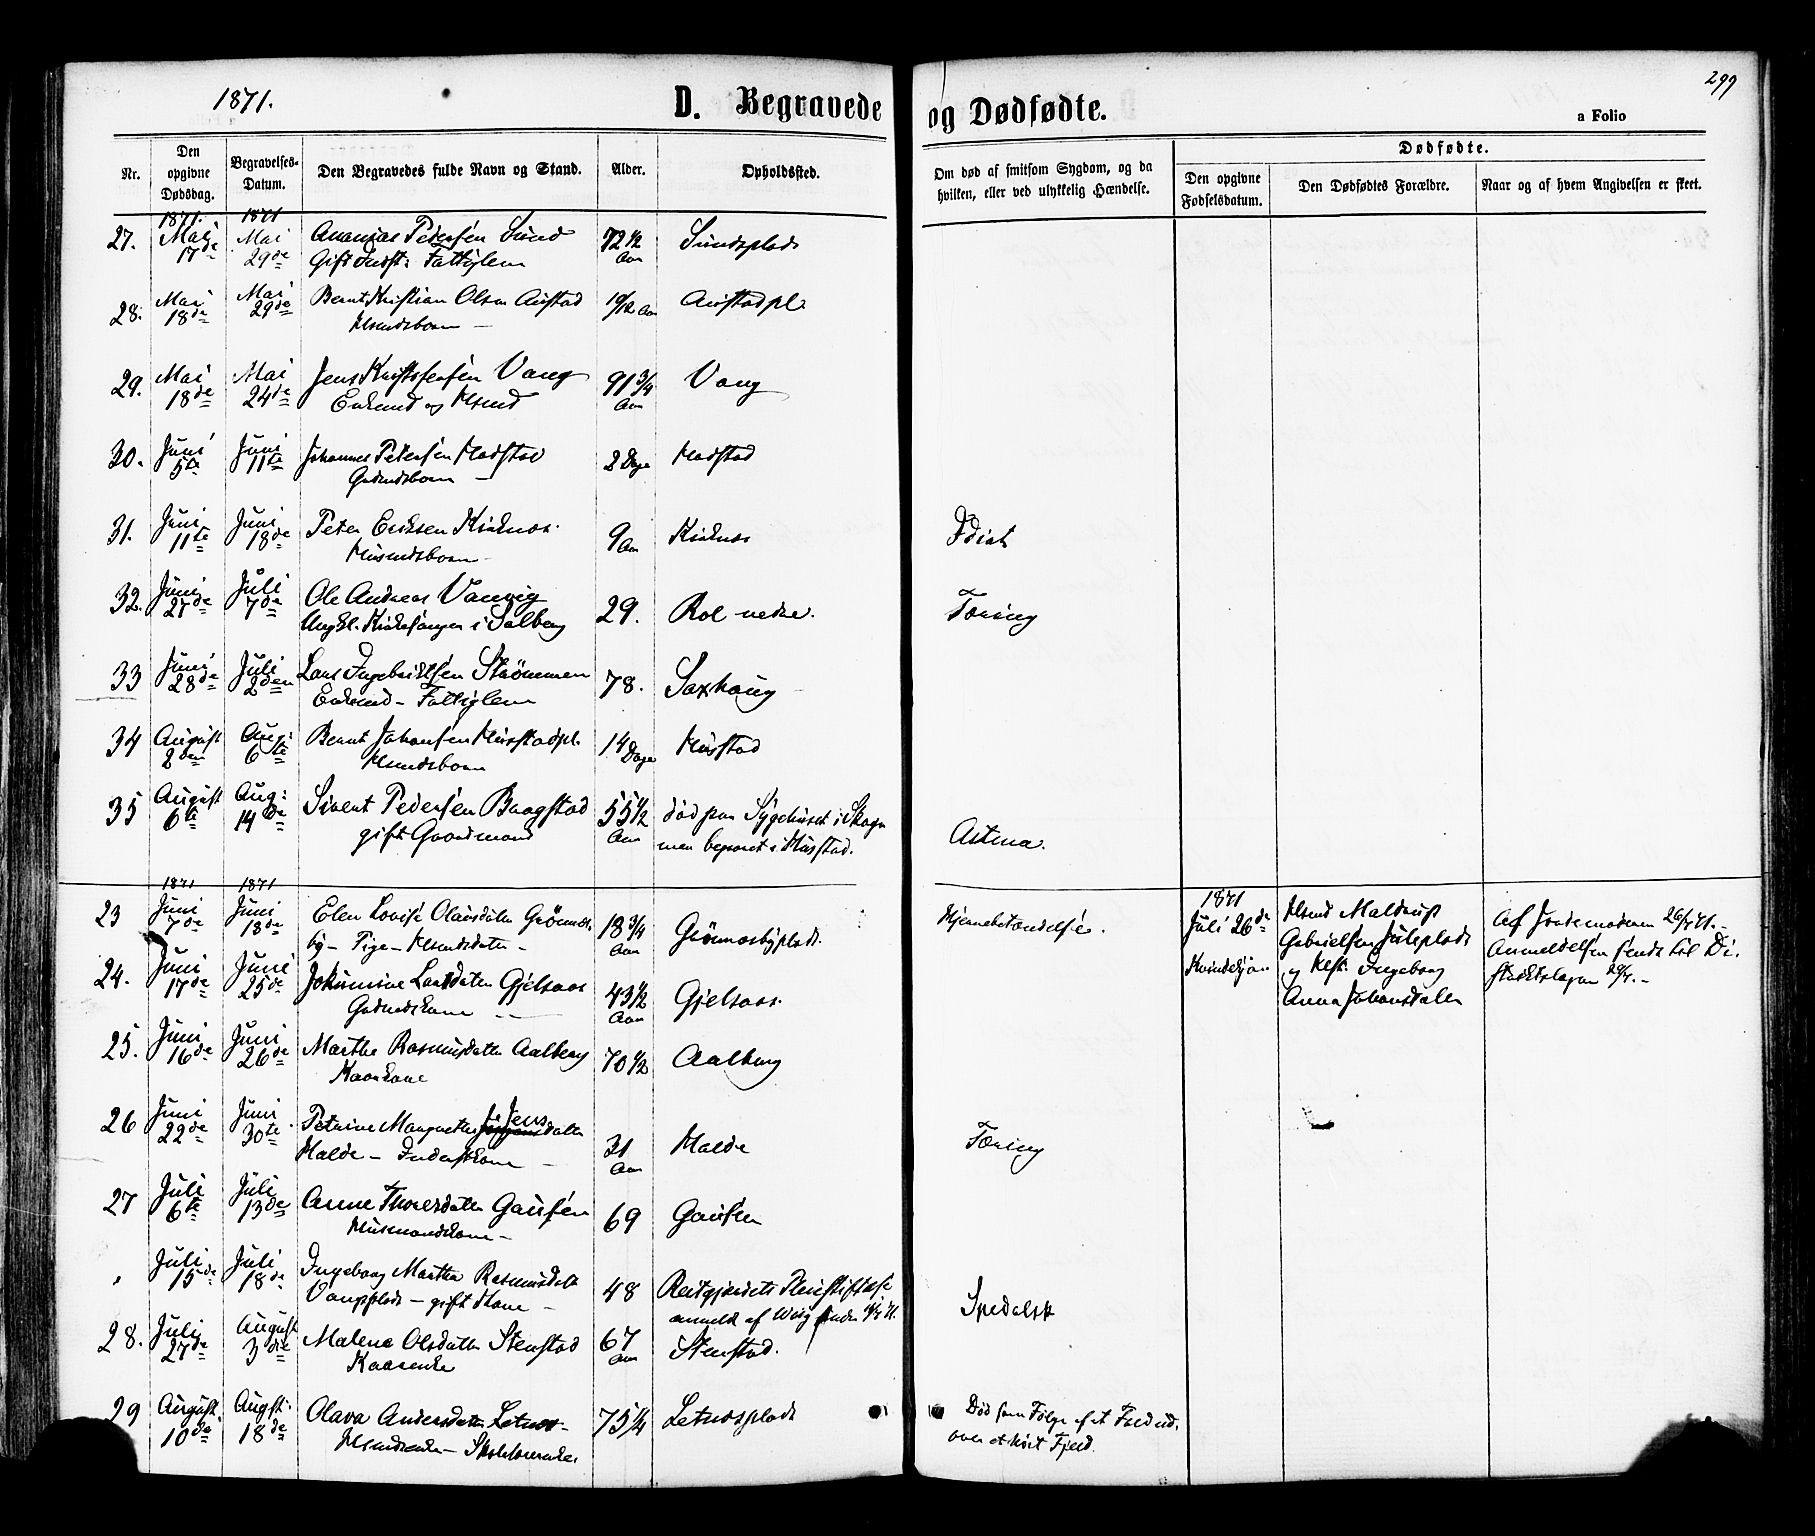 1871.
D. Begravede og Dødfødte.
299
a Folio
Nr.
Den opgivne Dødsdag.
Begravelses-Datum.
Den Begravedes fulde Navn og Stand.
Alder.
Opholdssted.
Om død af smitsom Sygdom, og da hvilken, eller ved ulykkelig Hændelse.
Dødfødte.
Den opgivne Fødselsdatum.
Den Dødfødtes Forældre.
Naar og af hvem Angivelsen er skeet.
1871. 1871
27. Mai 17de Mai 29de Ananias Pedersen Sund 72 1/2 Aar Sundsplads
Gift Indst: Fattiglem
28. Mai 18de Mai 29de Bernt Kristian Olsen Austad 10/12 Aar Austadpl.
Hsmdsbarn
29. Mai 18de Mai 24de Jens Kristoffersen Vang 91 3/4 Aar Vang
Enkemd og Hsmd
30. Juni 5te Juni 11te Johannes Petersen Hodstad 2 Dage Hodstad
Gdmdsbarn
31. Juni 11te Juni 18de Peter Eriksen Kirknes 9 Aar Kirknes Idiot
Husmdsbarn
32. Juni 27de Juli 7de Ole Andreas Vanvig 29. Rol nedre. Tæring
Ungkl. Kirkesanger i Salberg
33 Juni 28de Juli 2den Lars Ingebrigtsen Strömmen 78. Saxhaug
Enkemd - Fattiglem
34 August 2den Aug: 6te Bernt Johansen Husstadpl. 14 Dage Husstad
Hsmdsbarn
35 August 6te Aug: 14de Sivert Pedersen Baagstad 55 1/2 Aar død paa Sygehuset i Skogn
gift Gaardmand men begravet i Husstad. Astma.
1871 1871
23 Juni 7de Juni 18de Elen Lovise Olausdatter Grönnes- 18 3/4 Aar Grönnesbyplads. Hjernebetændelse.
by - Pige - Hsmdsdatter -
1871 Juli 26de Kvindekjøn
Hsmd Maldrup Gabrielsen Julsplads og Hst. Ingeborg Anna Johansdatter
Af Jordemoderen 26/7 71. Anmeldelsen sendt til Distriktslægen 29/7.
24. Juni 17de Juni 25de Johannine Larsdatter Gjelsaas 43 1/2 Aar Gjelsaas.
Gdmdskone
25. Juni 16de Juni 26de Marthe Rasmusdatter Aalberg 70 1/2 Aalberg
Kaarkone
26 Juni 22de Juni 30te Petrine Margrethe Jensdatter 31 Aar Halde Tæring
Halde - Inderstkone
27 Juli 6te Juli 13de Anne Thoresdatter Gausen 69 Gausen
Husmandskone -
Juli 15de Juli 18de Ingeborg Martha Rasmusdatter 48 Reitgjerdets Pleiestiftelse Spedalsk
Vangsplads - gift Kone -
28. Juli 27de August 3die Malena Olsdatter Stenstad 67 Aar Stenstad.
Kaarenke
29 August 10de Augst. 18de Olava Andersdatter Letnes- 75 1/4 Letnesplads Død som Følge af et Fald ud
Hsmdsenke - over et høit Fjeld.